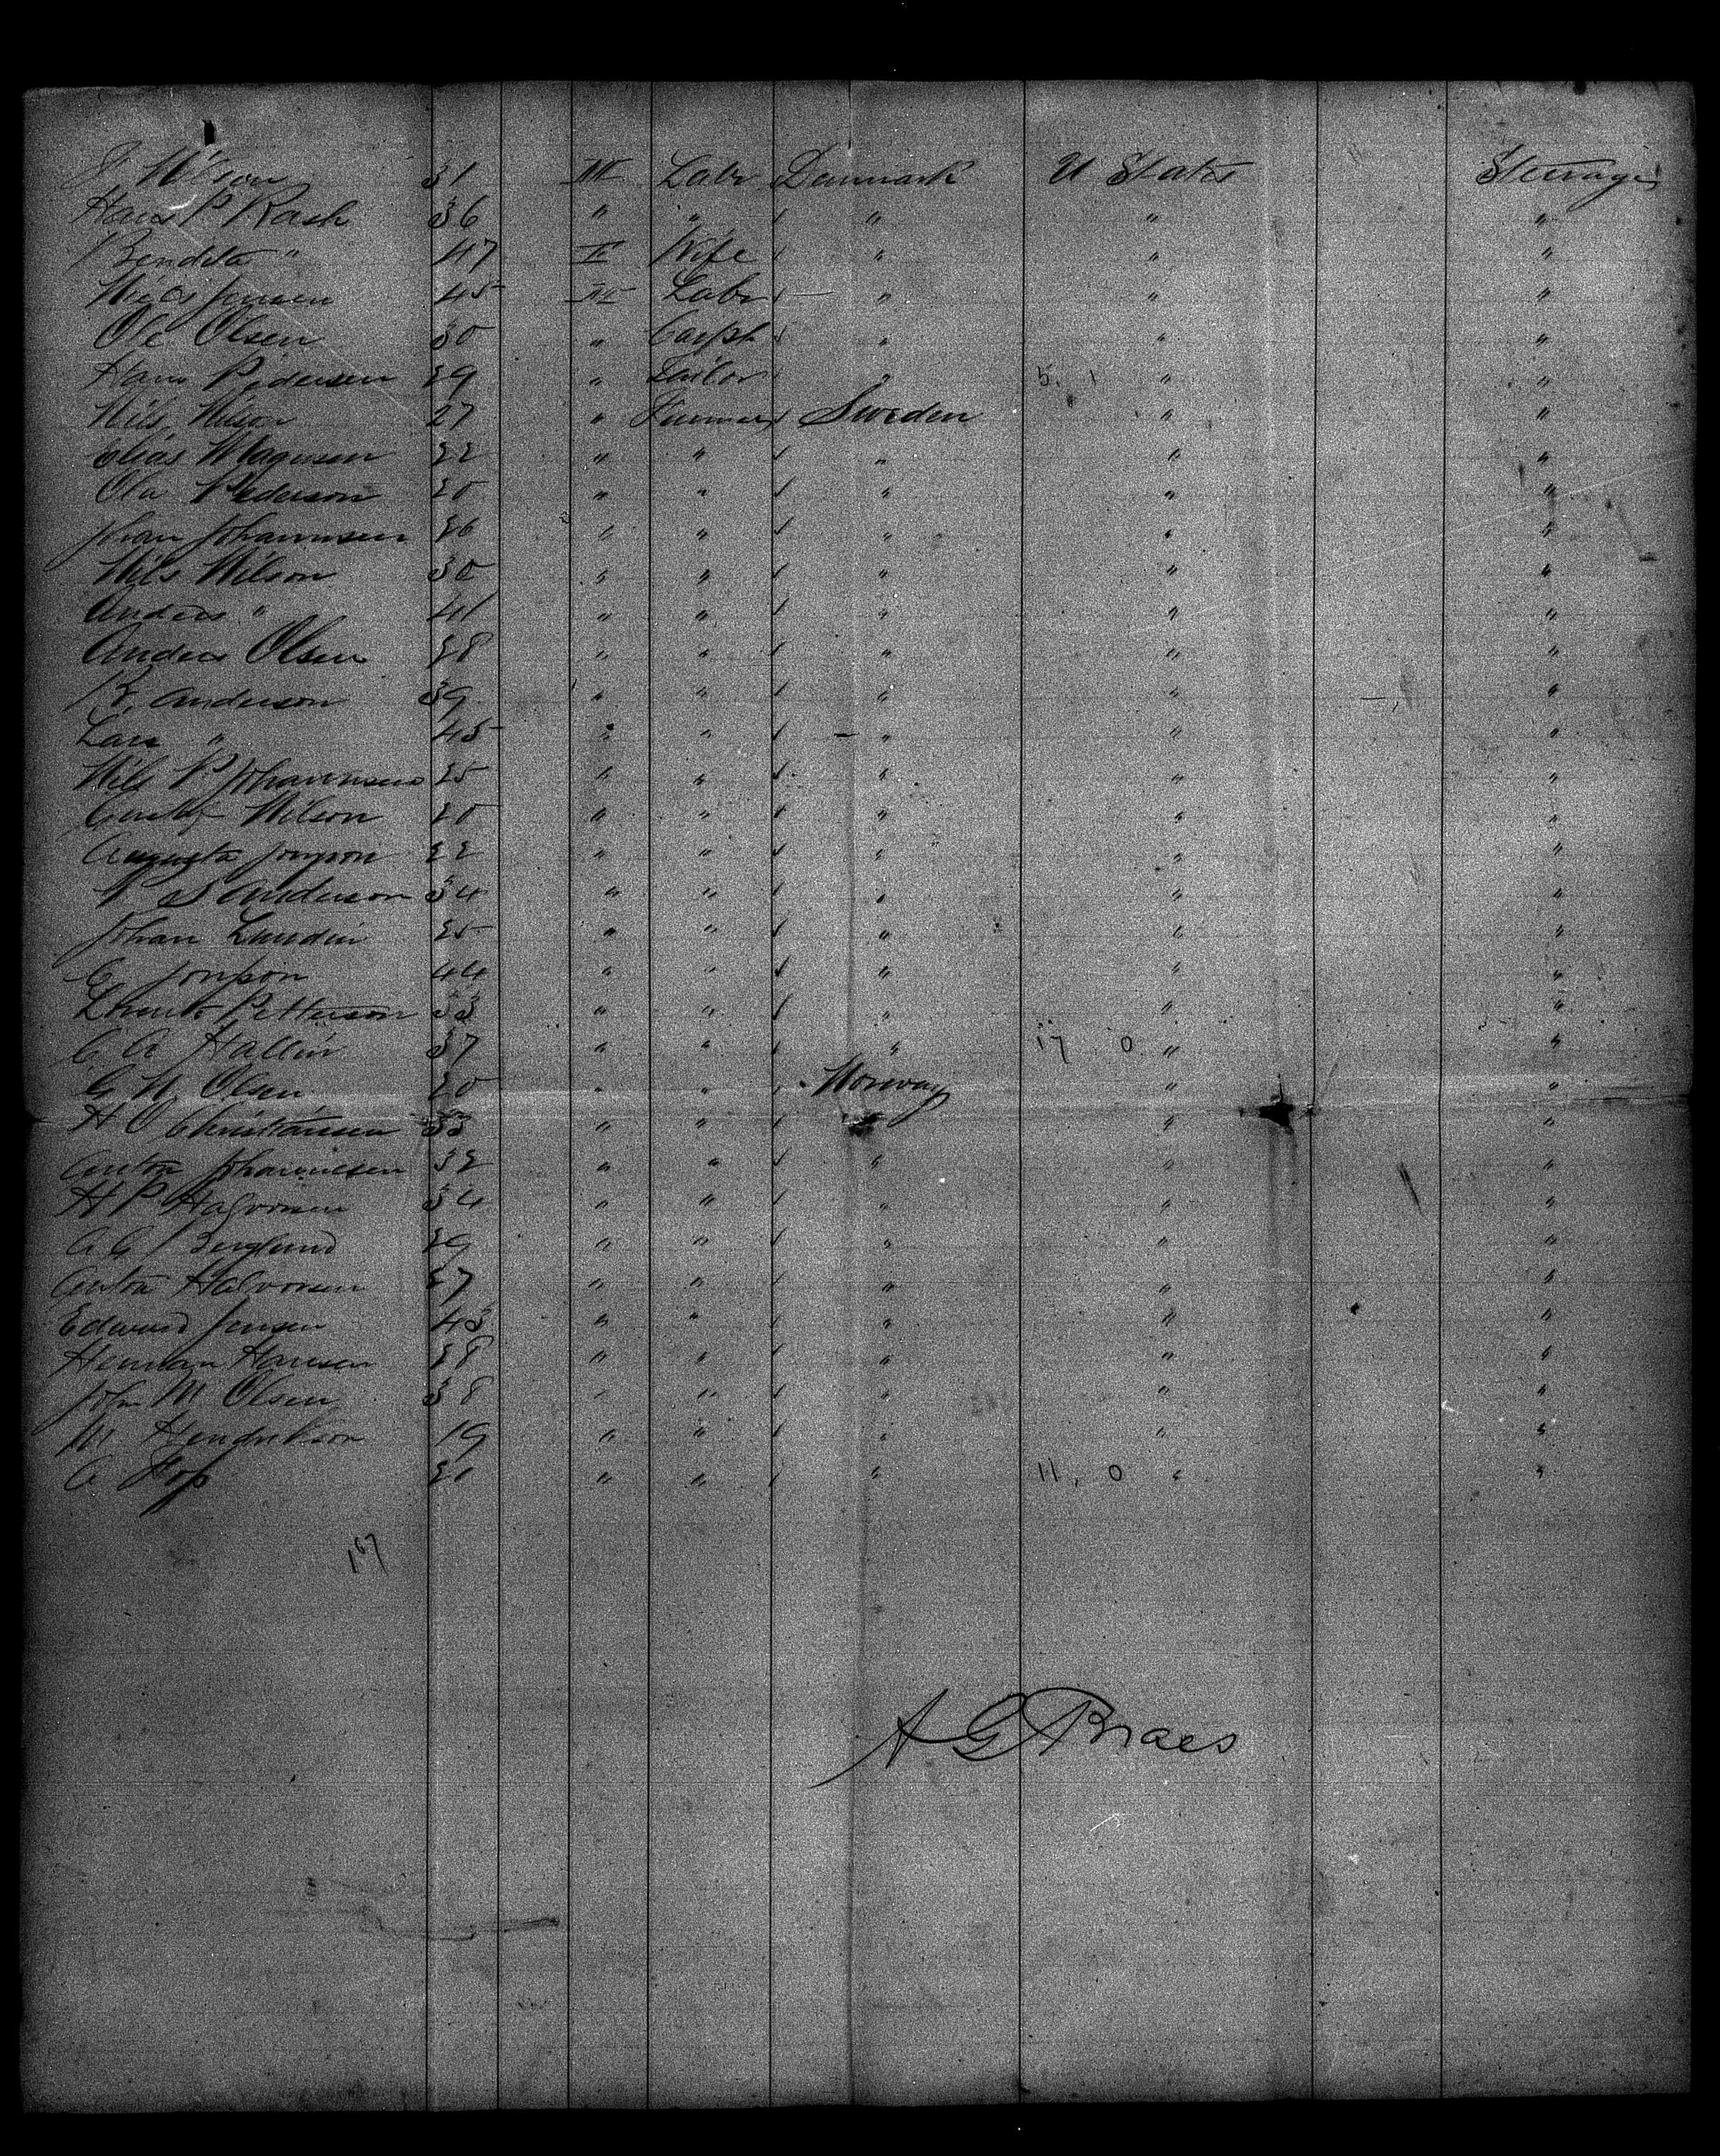 J Nilson 31 M Labr Denmark U States Steerage
Hans P Rash 36 " " " " "
Bendita " 47 F Wife " " "
Niels Jensen 45 M Labr " " "
Ole Olsen 30 " " " "
Hans Pedersen 29 " Tailor " 5, 1 " "
Nils Nilson 27 " Farmer Sweden " "
Elias Magnusen 22 " " " " "
Ola Pederson 20 " " " " "
Johan Johannsen 26 " " " " "
Nils Nilson 30 " " " " "
Anders " 41 " " " " "
Anders Olsen 28 " " " " "
B. Anderson 39 " " " " "
Lars " 45 " " " " "
Nils P. Johannsen 25 " " " " "
Gustaf Nilson 20 " " " " "
Augusta Jonsson 22 " " " " "
Anderson 34 " " " " "
Johan Lundin 25 " " " " "
C Jonsson 44 " " " " "
Petterson 33 " " " " "
C A Hallin 37 " " " 17 0 " "
C N. Olsen 20 " " Norway " "
H O Christiansen 33 " " " " "
Anton Johannesen 32 " " " " "
H P Halvorsen 34 " " " " "
A G Berglund 29 " " " " "
Anton Halvorsen 27 " " " " "
Edward Jensen 43 " " " " "
Herman Hansen 28 " " " " "
John M Olsen 38 " " " " "
M Hendrikson 19 " " " " "
A 21 " " " 11, 0 " "
167
A G Braes